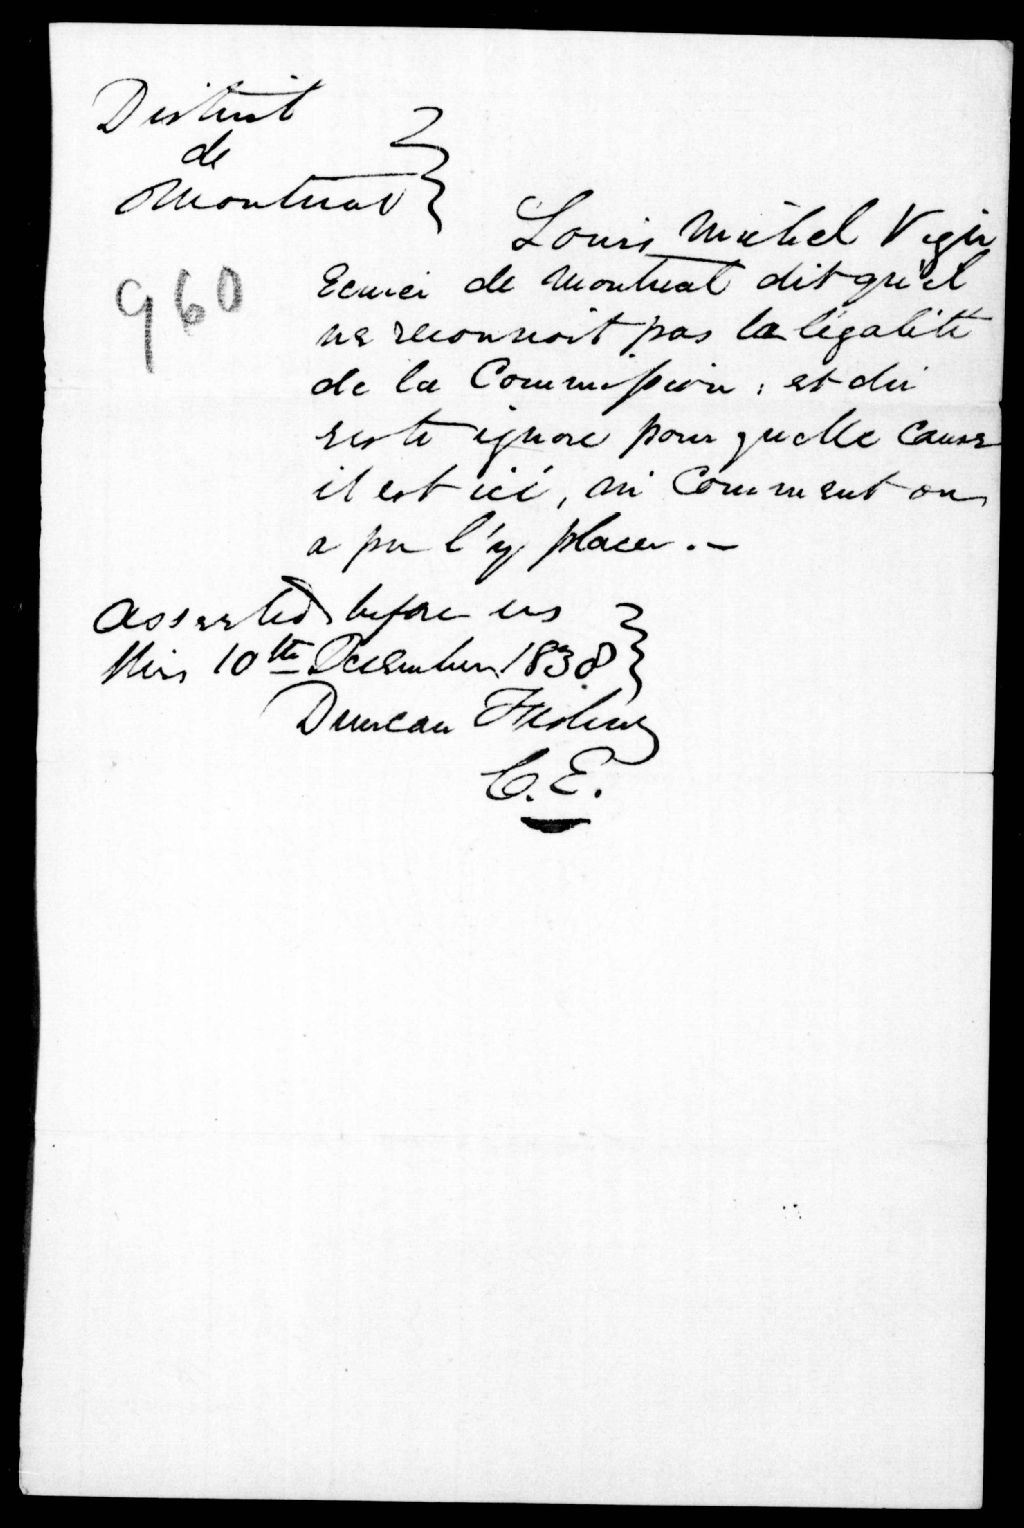 District
de
Montreal
Louis Michel Viger
960
Ecuier de Montreal dit qu'il
ne reconnoit pas la légalité
de la Commission ; et du
reste ignore pour quelle cause
il est ici, ni comment on
a pu l'y placer. —
Asserted before us
this 10th December 1838
Duncan Fisher
C. E.